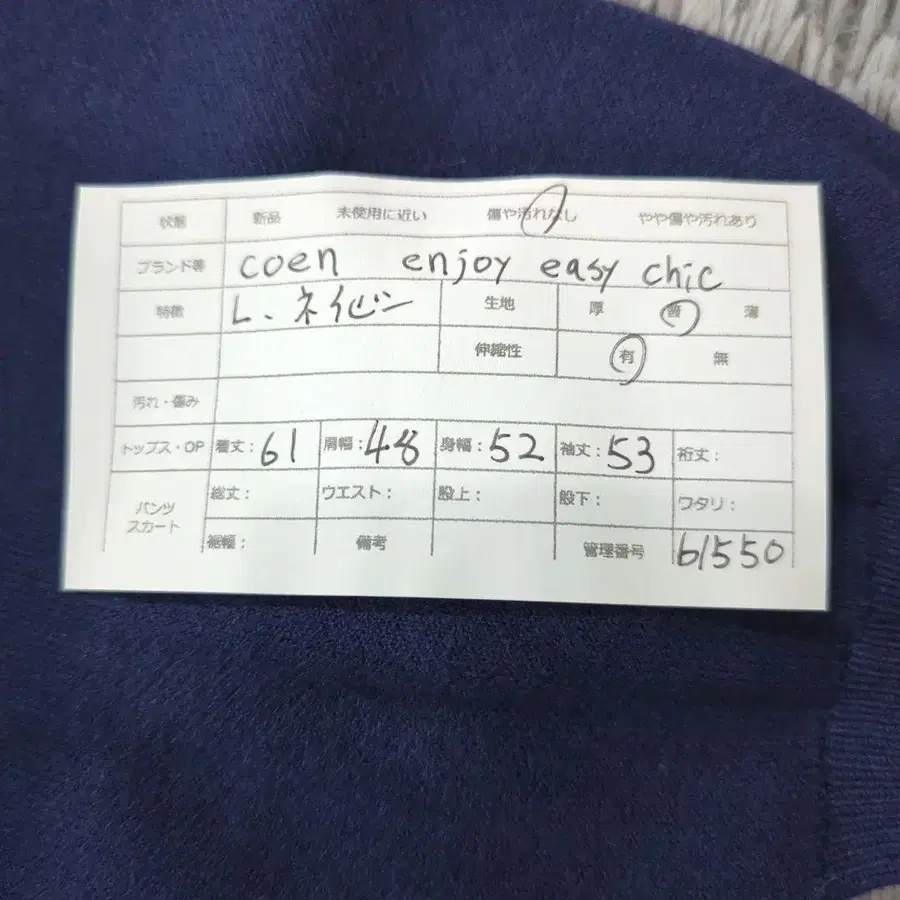 状態 新品 未使用に近い 傷や汚れなし やや傷や汚れあり
ブランド等 coen enjoy easy chic
特徴 L、ネイビー 生地 厚 普 薄
伸縮性 有 無
汚れ・傷み
トップス・OP 着丈:61 肩幅:48 身幅:52 袖丈:53 裄丈:
パンツ スカート 総丈: ウエスト: 股上: 股下: ワタリ:
裾幅: 備考 管理番号 61550